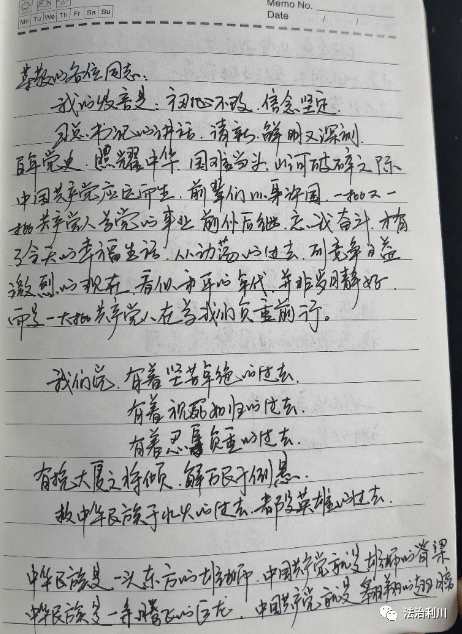 Memo No.
Mo Tu We Th Fr Sa Su
Date / /
尊敬的各位同志:
我的发言是:初心不改,信念坚定.
习总书记的讲话,清新,鲜明又深刻.
百年党史,照耀中华,国难当头,山河破碎之际
中国共产党应运而生,前辈们以身许国,一批又一
批共产党人为党的事业前仆后继,忘我奋斗,才有
了今天的幸福生活,从动荡的过去,到竞争日益
激烈的现在,看似和平的年代,并非岁月静好,
而是一大批共产党人在为我们负重前行。
我们党,有着坚苦卓绝的过去.
有着视死如归的过去.
有着忍辱负重的过去.
有拾大厦之将倾,解万民于倒悬.
救中华民族于水火的过去.都是英雄的过去.
中华民族是一头东方的雄狮,中国共产党就是雄狮的脊梁
中华民族是一条腾飞的巨龙,中国共产党就是翱翔的翅膀
法治利川